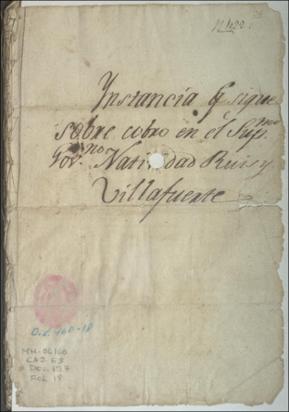 Instancia q. sigue
sobre cobro en el Sup.mo
Gov.no Natividad Ruis y
Villafuerte
O.L. 160-18
MH-OL160
CAJ. 53
DOC. 157
FOL. 18